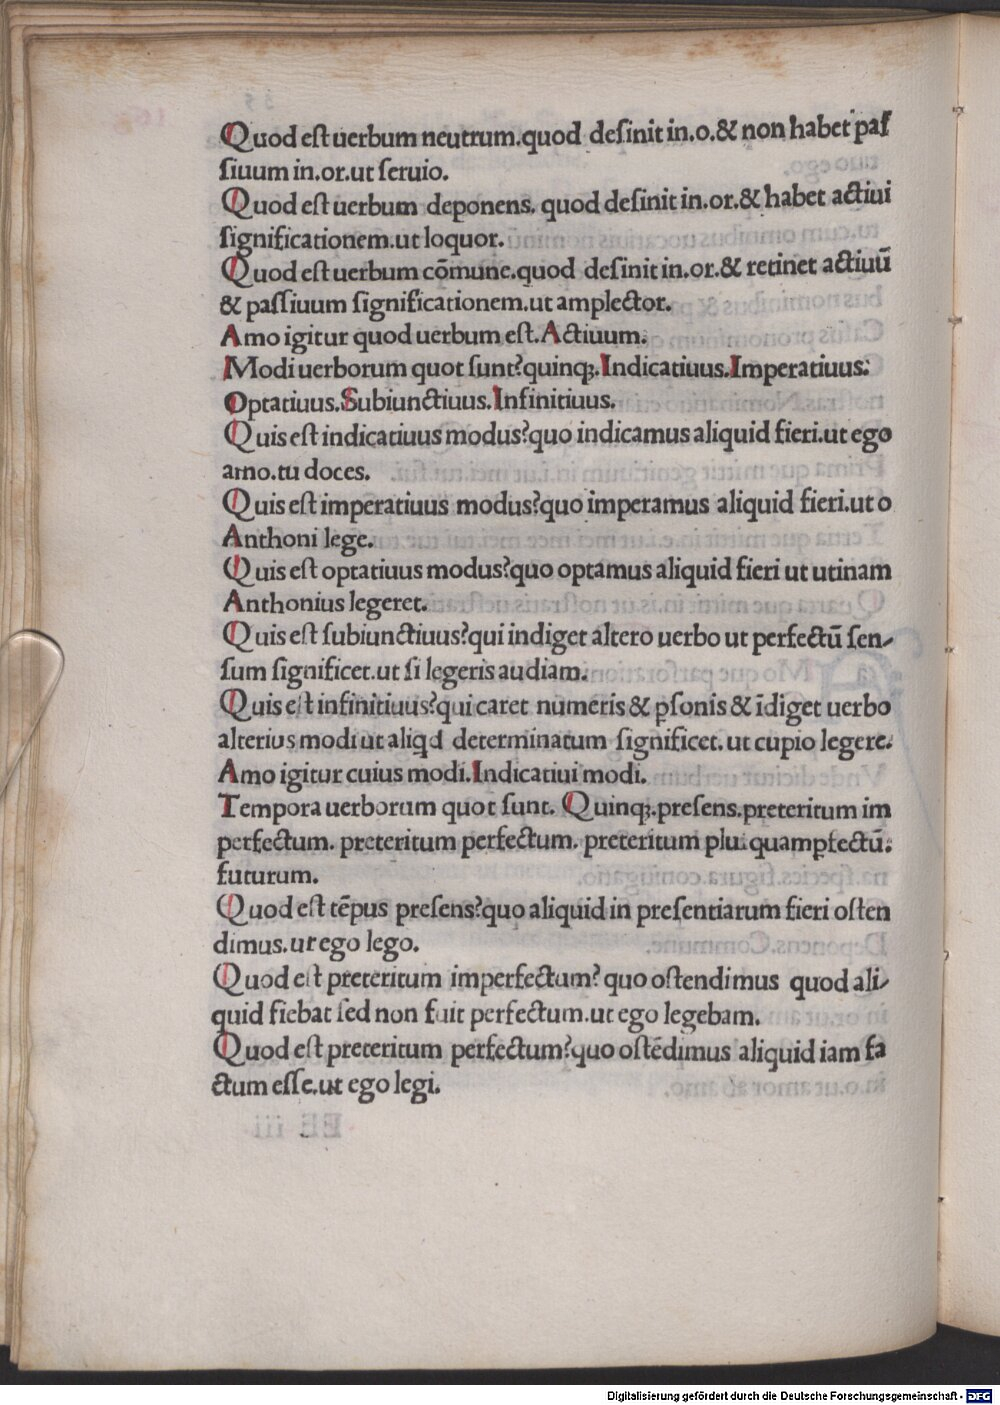 Quod eſt uerbum neutrum.quod deſinit in.o.& non habet paſ
ſiuum in.or.ut ſeruio.
Quod eſt uerbum deponens. quod deſinit in.or.& habet actiui
ſignificationem.ut loquor.
Quod eſt uerbum cōmune.quod deſinit in.or.& retinet actiuū
& paſſiuum ſignificationem.ut amplector.
Amo igitur quod uerbum eſt.Actiuum.
Modi uerborum quot ſunt?quinqꝫ.Indicatiuus.Imperatiuus.
Optatiuus.Subiunctiuus.Infinitiuus.
Quis eſt indicatiuus modus?quo indicamus aliquid fieri.ut ego
amo.tu doces.
Quis eſt imperatiuus modus?quo imperamus aliquid fieri.ut o
Anthoni lege.
Quis eſt optatiuus modus?quo optamus aliquid fieri ut utinam
Anthonius legeret.
Quis eſt ſubiunctiuus?qui indiget altero uerbo ut perfectū ſen-
ſum ſignificet.ut ſi legeris audiam.
Quis eſt infinitiuus?qui caret numeris & ꝑſonis & īdiget uerbo
alterius modi ut aliqd determinatum ſignificet.ut cupio legere.
Amo igitur cuius modi.Indicatiui modi.
Tempora uerborum quot ſunt. Quinqꝫ.preſens.preteritum im
perfectum. preteritum perfectum. preteritum plu.quamꝑfectū.
futurum.
Quod eſt tēpus preſens?quo aliquid in preſentiarum fieri oſten
dimus.ut ego lego.
Quod eſt preteritum imperfectum? quo oſtendimus quod ali-
quid fiebat ſed non fuit perfectum.ut ego legebam.
Quod eſt preteritum perfectum?quo oſtēdimus aliquid iam fa
ctum eſſe.ut ego legi.
Digitalisierung gefördert durch die Deutsche Forschungsgemeinschaft - DFG